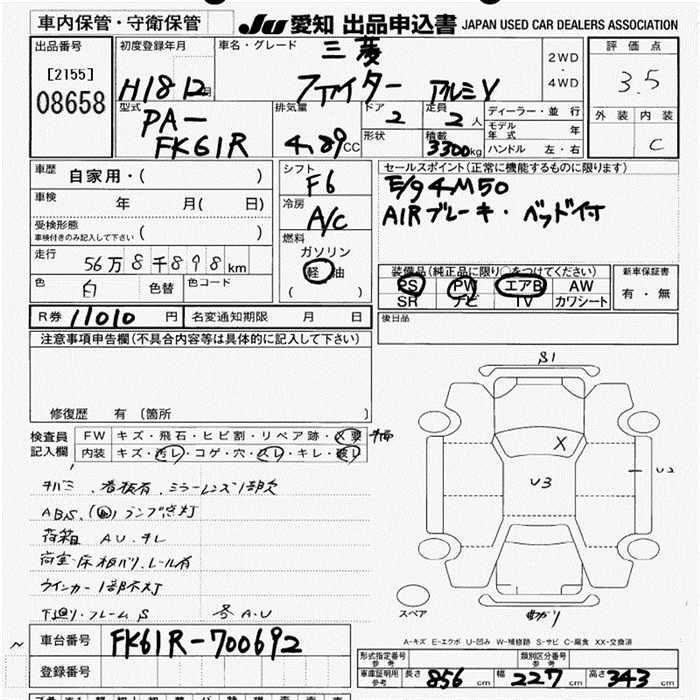 車内保管・守衛保管
JU 愛知 出品申込書 JAPAN USED CAR DEALERS ASSOCIATION
出品番号
[2155]
08658
初度登録年月
H18 12月
車名・グレード
三菱
ファイター アルミV
2WD
・
4WD
評価点
3.5
外装 内装
C
型式
PA-
FK61R
排気量
4.89CC
ドア
2
形状
定員
2人
積載
3300kg
ディーラー・並行
モデル年式 年
ハンドル 左・右
車歴
自家用・( )
車検
年 月( 日)
受検形態
車検付きのみ記入して下さい ( )
走行
56万8千898km
色
白
色替
色コード
シフト
F6
冷房
A/C
燃料
ガソリン
軽油
( )
セールスポイント(正常に機能するものに限ります)
E/g 4M50
AIRブレーキ・ベッド付
装備品(純正品に限り○をつけてください)
PS PW エアB AW
SR ナビ TV カワシート
新車保証書
有・無
R券 11010円
名変通知期限 月 日
後日品
注意事項申告欄(不具合内容等は具体的に記入して下さい)
修復歴 有 (箇所 )
検査員
記入欄
FW キズ・飛石・ヒビ割・リペア跡・X要
内装 キズ・汚レ・コゲ・穴・スレ・キレ・破レ
看板有、ミラーレンズ1部欠
ABS、ランプ点灯
荷箱 AU、キレ
荷室・床板バリ、レール有
ウインカー1部不灯
下廻り・フレームS 冬A・U
S1
X
U3
U2
スペア
曲がり
A-キズ E-エクボ U-凹み W-補修跡 S-サビ C-腐食 XX-交換済
車台番号
FK61R-700692
登録番号
形式指定番号
参考
類別区分番号
参考
車庫証明用
参考
長さ 856cm 幅 227cm 高さ 343cm